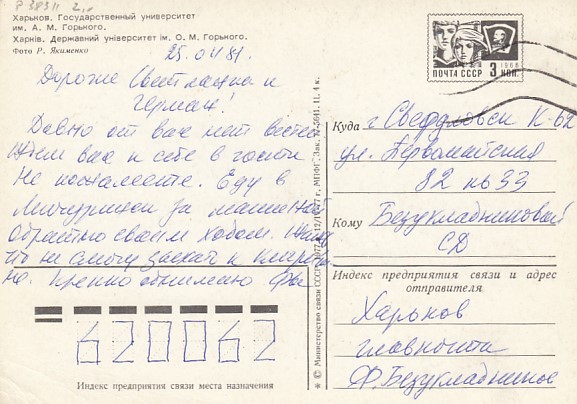 Р 38311
Харьков. Государственный университет
им. А. М. Горького.
Харків. Державний університет ім. О. М. Горького.
Фото Р. Якименко
25.04 81.
Дорогие Светлашка и
Герман!
Давно от вас нет вестей
Ждем вас к себе в гости
Не пожалеете. Еду в
Мичуринск за машиной
обратно своим ходом. Жаль
что не смогу заехать к
Крепко обнимаю
ПОЧТА СССР 3 КОП.
1966
Куда г. Свердловск К-62
ул. Первомайская
82 кв 33
Кому Безукладниковой
СД
Индекс предприятия связи и адрес
отправителя
Харьков
главпочта
Ф. Безукладников
620062
Индекс предприятия связи места назначения
© Министерство связи СССР. 1977
МПФГ. Зак. 77-5641. Ц. 4 к.